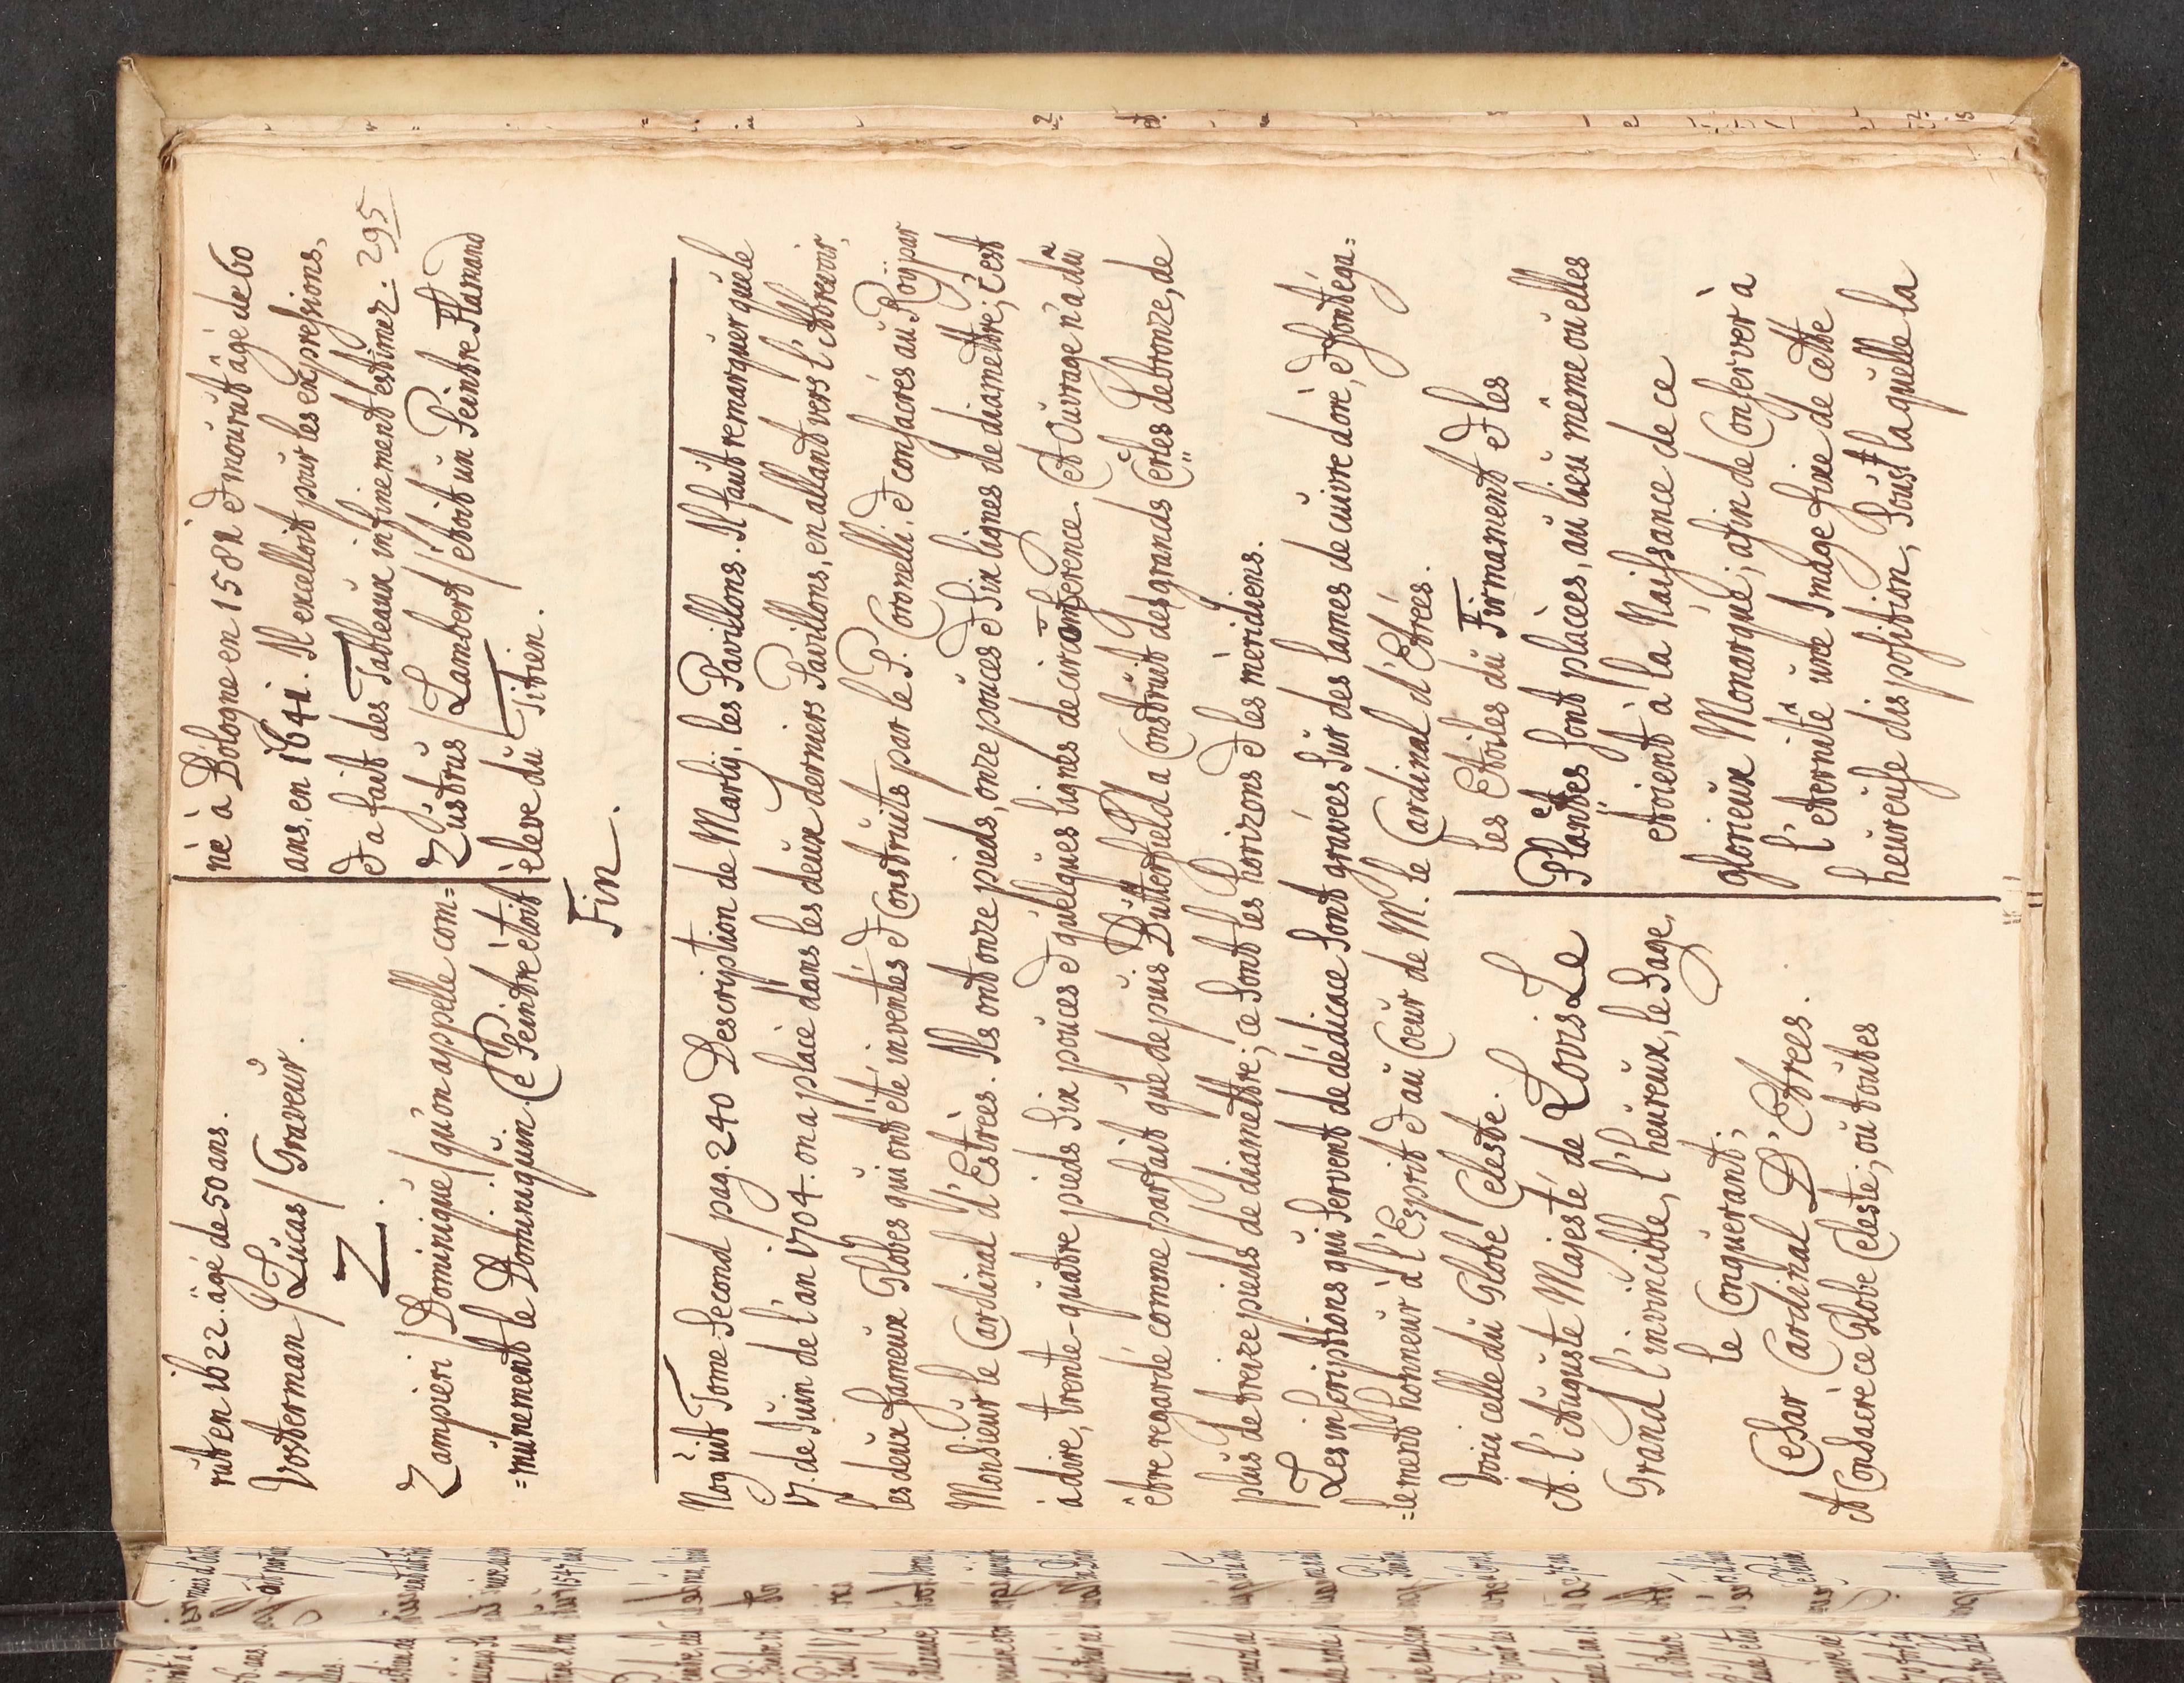 rut en 1622. âgé de 50 ans.
Vosterman / Lucas / Graveur.
Z.
Zampieri / Dominique / qu'on appelle com=
=munement le Dominiquin. Ce Peintre étoit
né à Bologne en 1582 et mourut âgé de 60
ans, en 1641. Il excelloit pour les expressions,
et a fait des Tableaux infinement estimez. 295
Zustrus / Lambert / étoit un Peintre Flamand
éleve du Titien.
Fin.
Tome Second pag. 240 Description de Marly, les Pavillons. Il faut remarquer que le
17. de Juin de l'an 1704. on a placé dans les deux derniers Pavillons, en allant vers l'Abrevoir,
les deux fameux Globes qui ont été inventés et Construits par le P. Coronelli, et consacrés au Roy par
Monsieur le Cardinal d'Estrées. Ils ont onze pieds, onze pouces et Six lignes de diamettre; c'est
à dire, trente-quatre pieds Six pouces et quelques lignes de circonference. Cet Ouvrage n'a dû
être regardé comme parfait que depuis Butterfield a Construit des grands Cercles de bronze, de
plus de treize pieds de diamettre; ce Sont les horizons et les méridiens.
Les inscriptions qui Servent de dédicace Sont gravées Sur des lames de cuivre doré, et font éga=
=lement honneur à l'Esprit et au Coeur de M. le Cardinal d'Etrées.
Voici celle du Globe Celeste.
A l'Auguste Majesté de Louis Le
Grand l'invincible, l'heureux, le Sage,
le Conquerant;
Cesar Cardinal D'Etrees.
A Consacré ce Globe Celeste; où toutes
les Etoiles du Firmament et les
Planétes sont placées, au lieu même où elles
etoient à la Naissance de ce
glorieux Monarque; afin de Conserver à
l'eternité une Image fixe de cette
heureuse disposition, Sous laquelle la